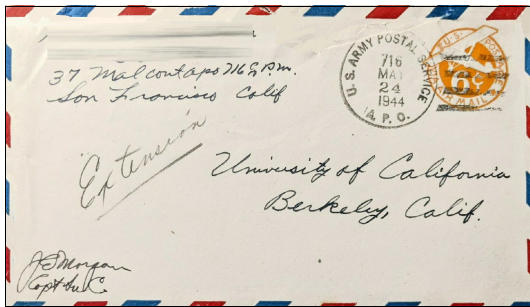 37 Mal cont apo 716 % P.M.
San Francisco Calif
U.S. ARMY POSTAL SERVICE
716
MAY
24
1944
A. P. O.
U.S. POSTAGE
VIA AIR MAIL
Extension
University of California
Berkeley, Calif.
J S Morgan
Capt Sn C.